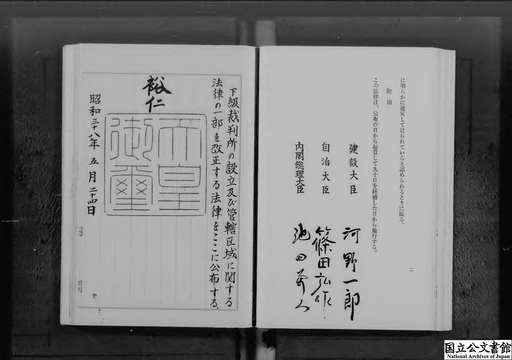 に明らかに違反してはられていると認められるときに限る。
附則
この法律は、公布の日から起算して九十日を経過した日から施行する。
建設大臣 河野一郎
自治大臣 篠田弘作
内閣総理大臣 池田勇人
二
下級裁判所の設立及び管轄区域に関する
法律の一部を改正する法律をここに公布する。
裕仁
天皇
御璽
昭和三十八年五月二十四日
国立公文書館
National Archives of Japan